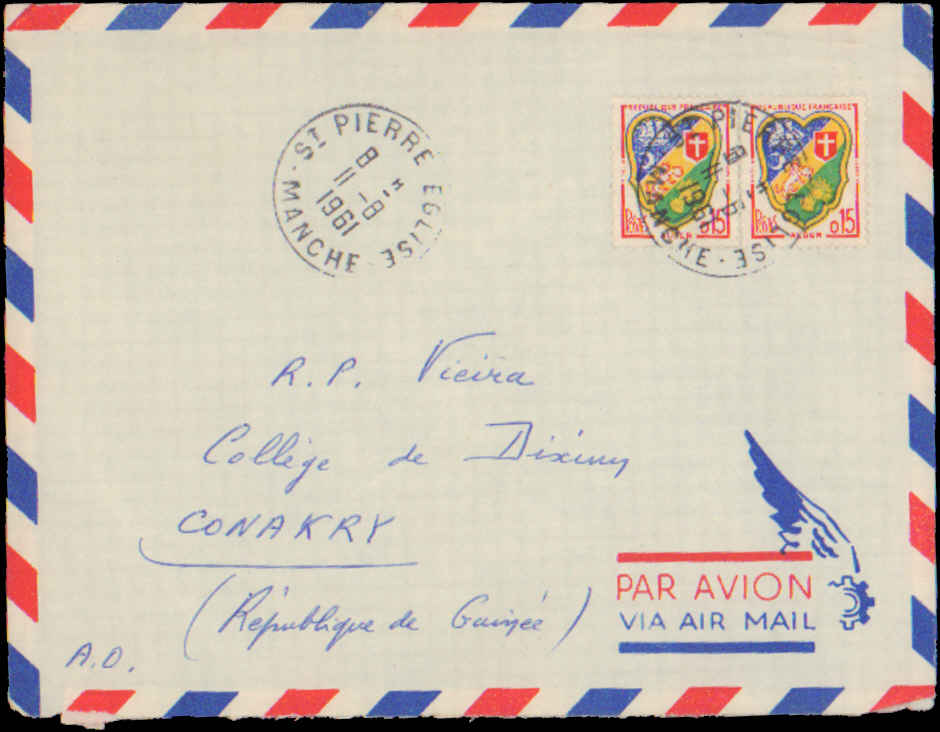 ST PIERRE EGLISE
8 H
11-8
1961
MANCHE
REPUBLIQUE FRANÇAISE
POSTES 0,15
ALGER
ST PIERRE EGLISE
MANCHE
R.P. Vieira
Collège de Dixinn
CONAKRY
(République de Guinée)
A.O.
PAR AVION
VIA AIR MAIL